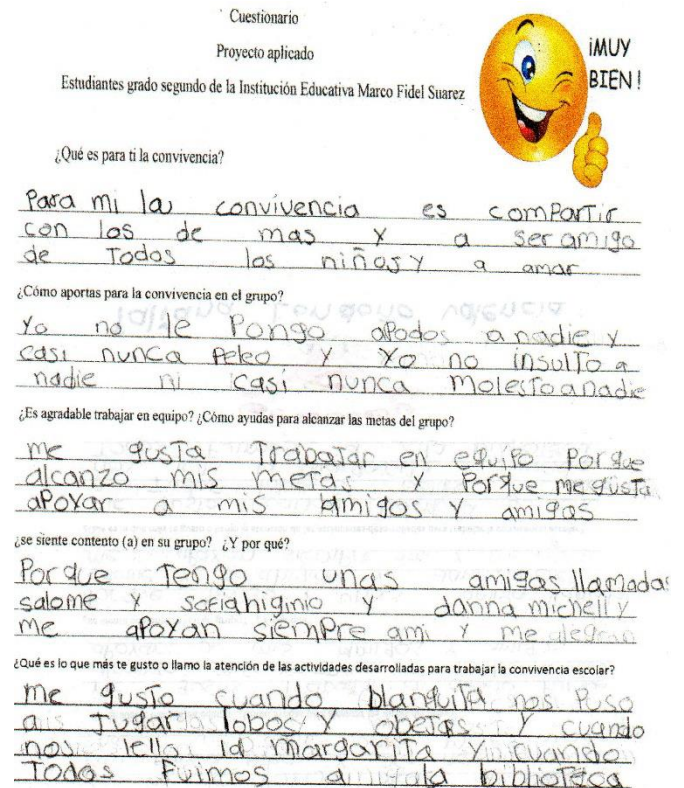 Cuestionario
Proyecto aplicado
Estudiantes grado segundo de la Institución Educativa Marco Fidel Suarez
¡MUY
BIEN!
¿Qué es para ti la convivencia?
Para mi la convivencia es compartir
con los de mas y a ser amigo
de Todos los niños y a amar
¿Cómo aportas para la convivencia en el grupo?
Yo no le Pongo apodos a nadie y
casi nunca Peleo y Yo no insulto a
nadie ni casi nunca molesto a nadie
¿Es agradable trabajar en equipo? ¿Cómo ayudas para alcanzar las metas del grupo?
me gusta Trabajar en equipo Porque
alcanzo mis metas y Porque me gusta
apoyar a mis amigos y amigas
¿se siente contento (a) en su grupo? ¿Y por qué?
Porque Tengo unas amigas llamadas
salome y sofia higinio y danna michell y
me apoyan siempre ami y me alegran
¿Qué es lo que más te gusto o llamo la atención de las actividades desarrolladas para trabajar la convivencia escolar?
me gusto cuando blanquita nos Puso
a Jugar lobos y obejas y cuando
nos lello la margarita y cuando
Todos Fuimos a la biblioteca